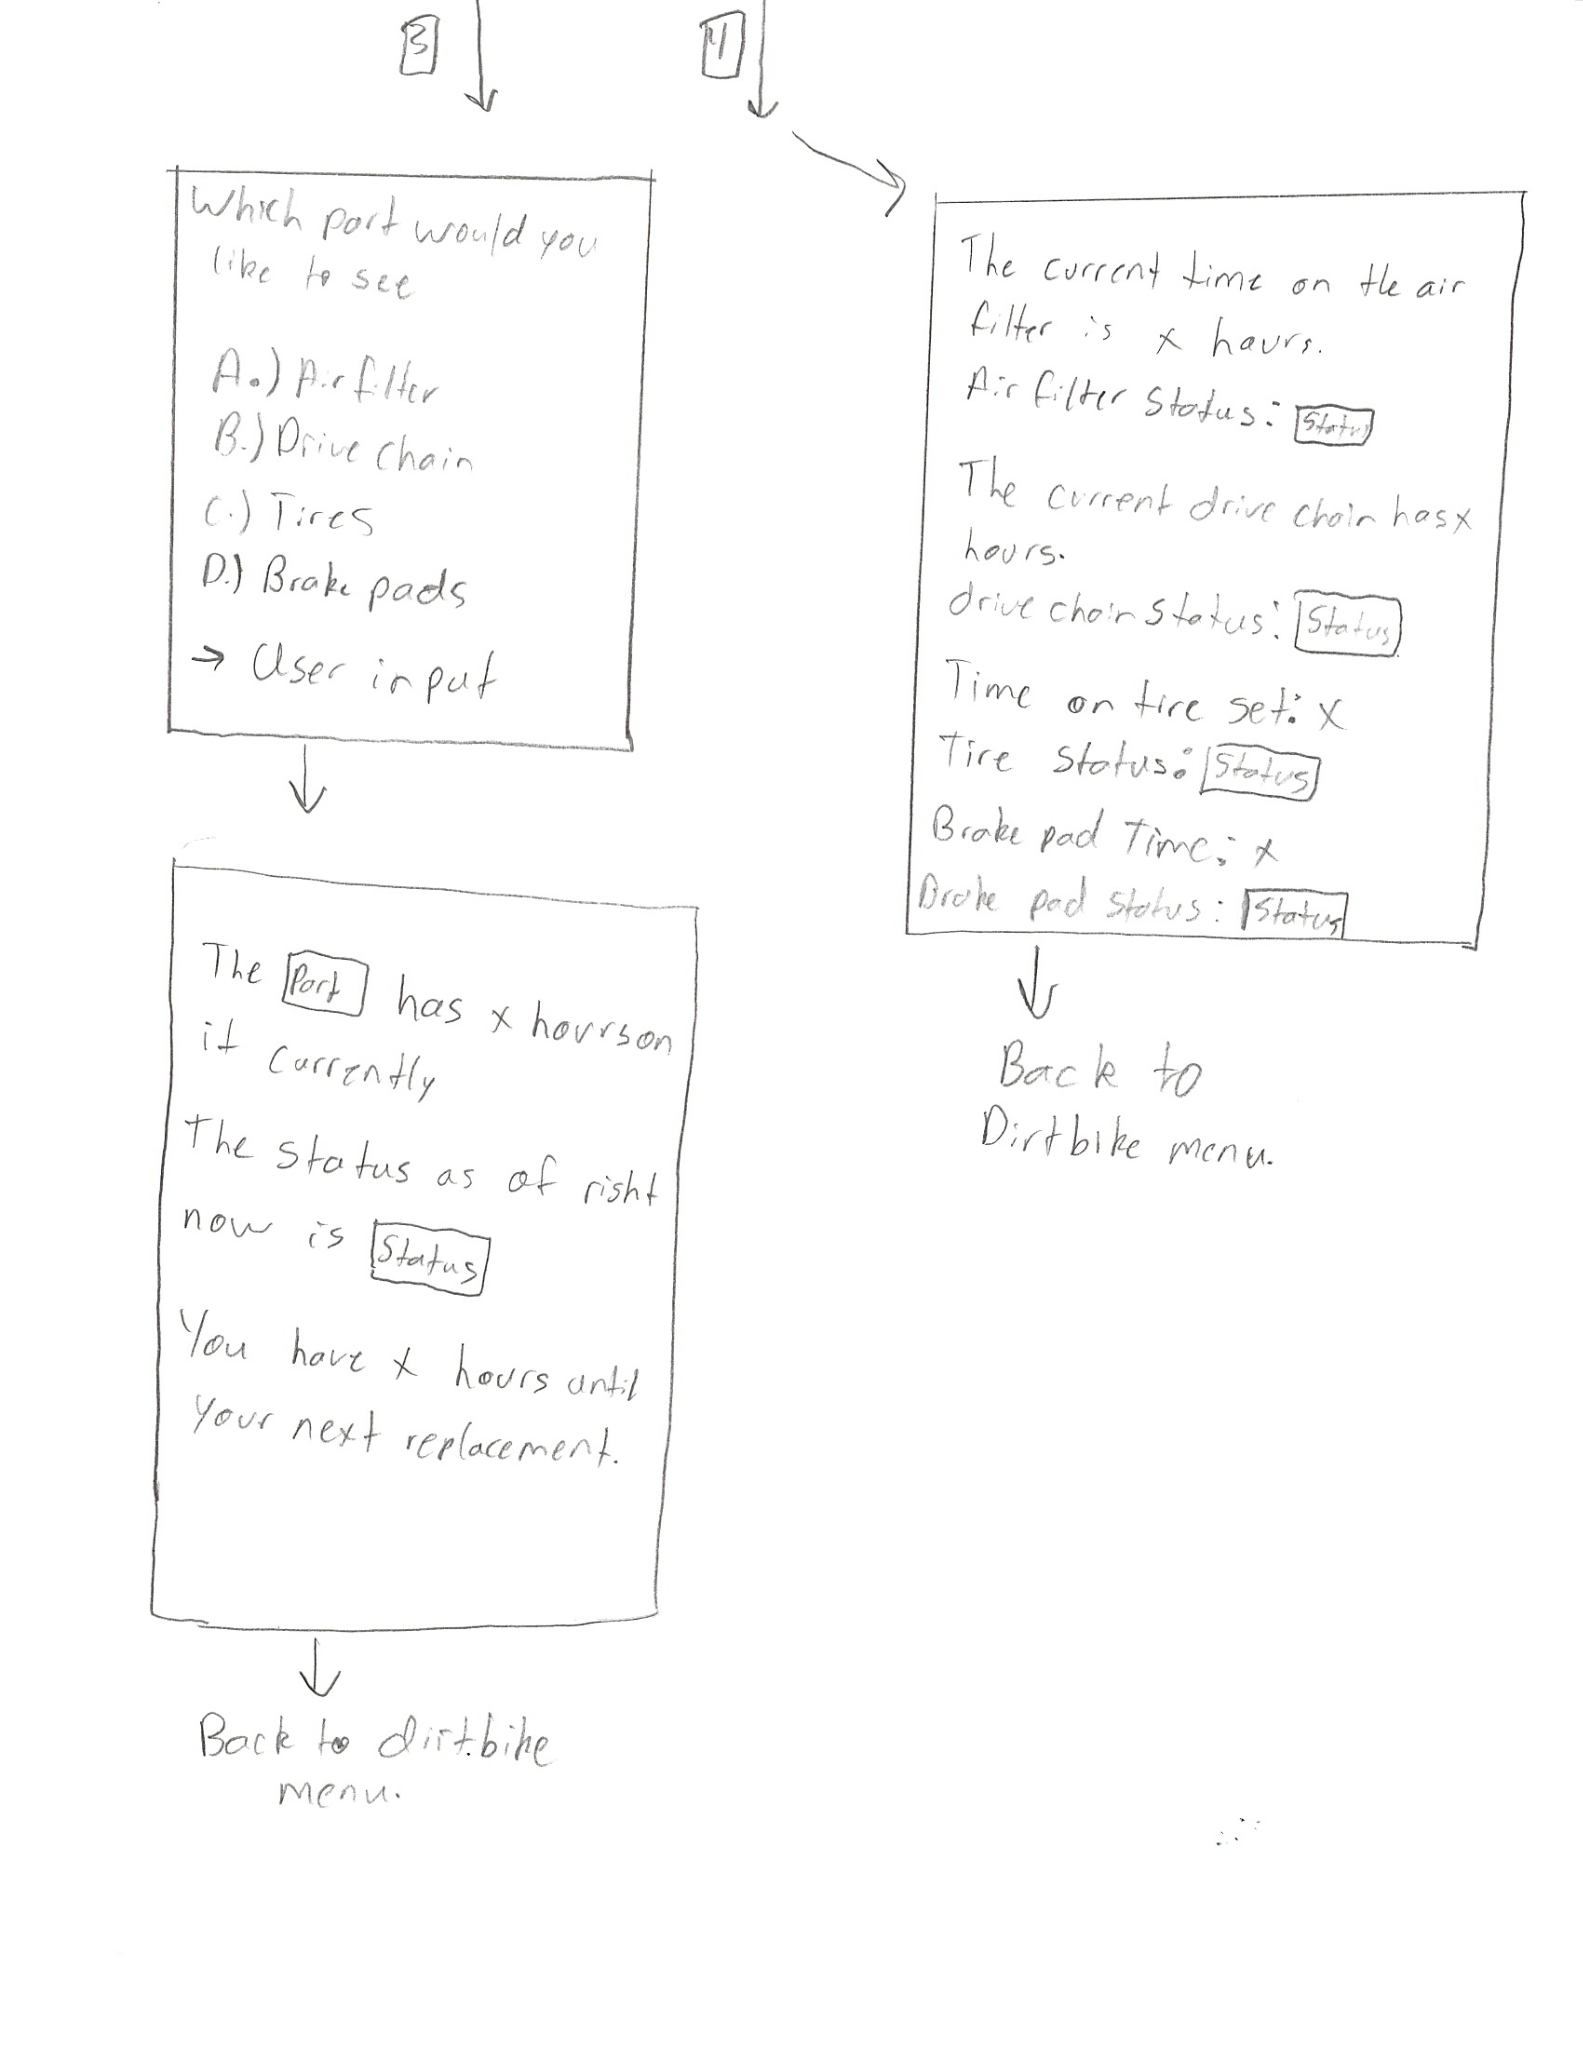 3
4
Which part would you
like to see
A.) Air filter
B.) Drive chain
C.) Tires
D.) Brake pads
→ User input
The Part has x hours on
it currently
The status as of right
now is Status
You have x hours until
your next replacement.
Back to dirtbike
menu.
The current time on the air
filter is x hours.
Air filter Status: Status
The current drive chain has x
hours.
drive chain Status: Status
Time on tire set: X
Tire Status: Status
Brake pad Time: x
Brake pad Status: Status
Back to
Dirtbike menu.